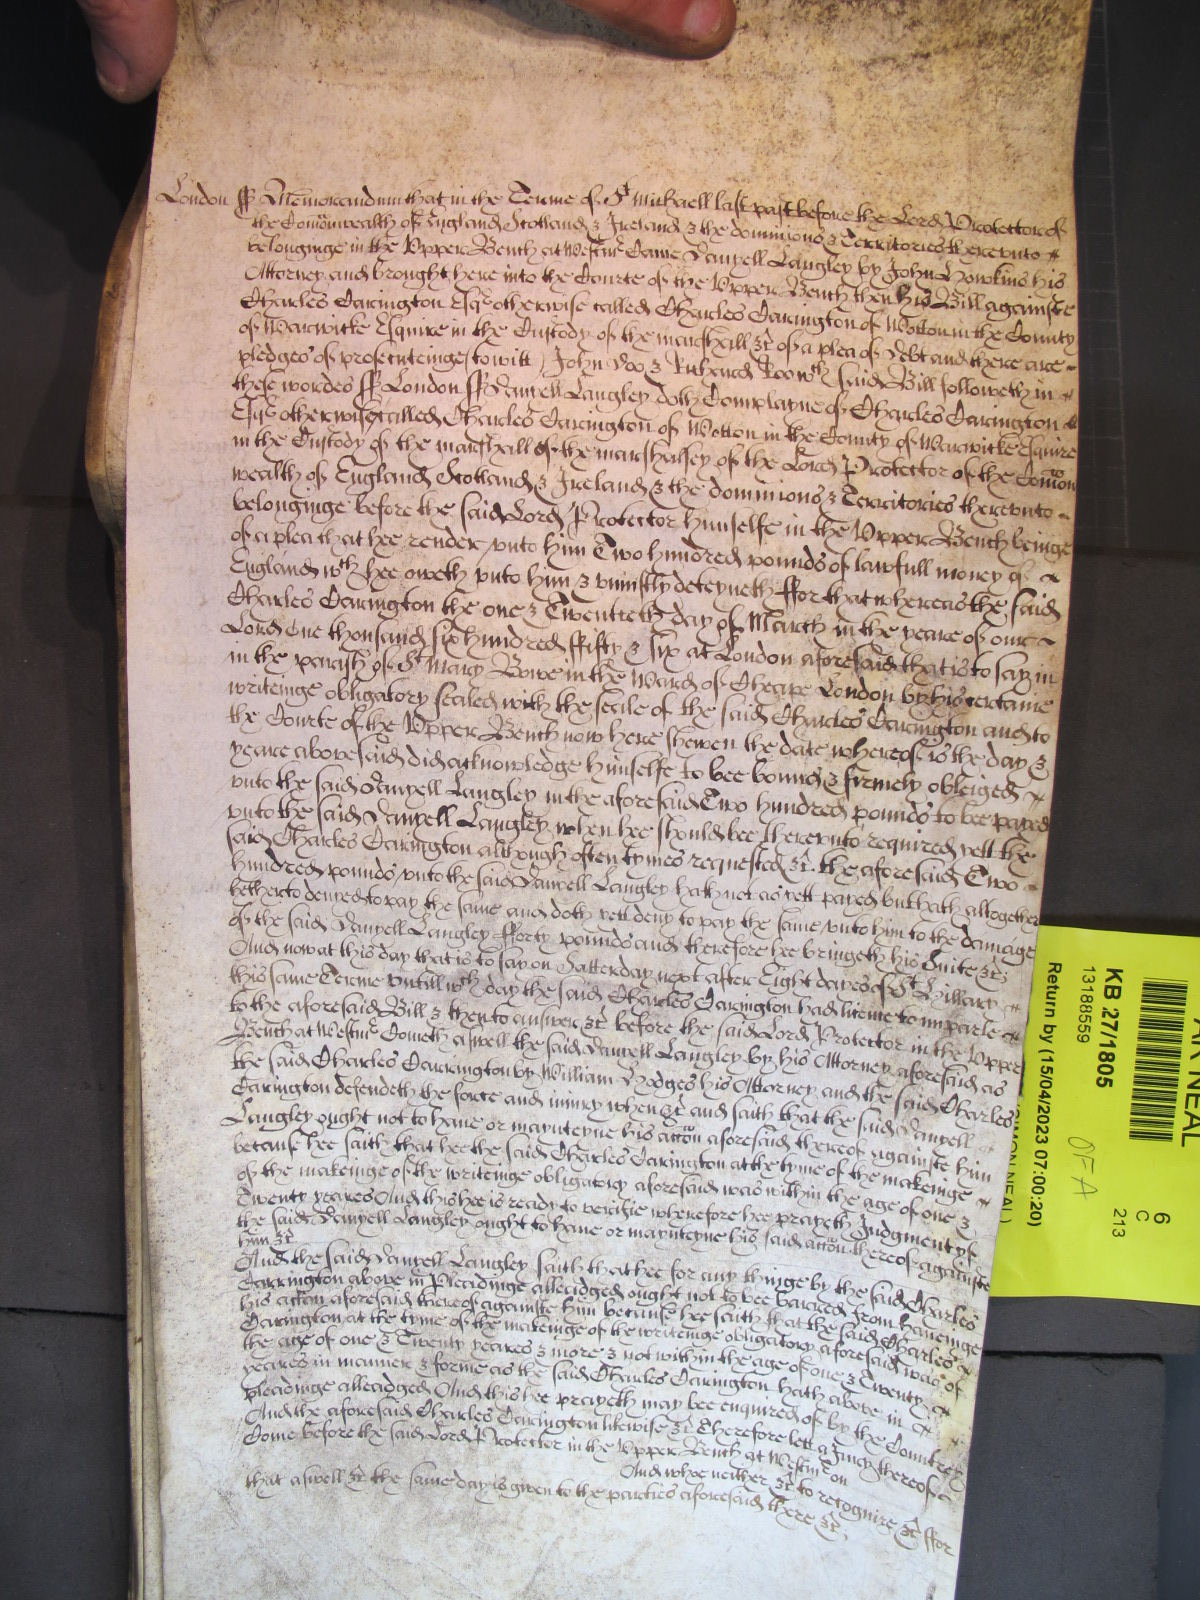 London ss Memorandum that in the Terme of St Michaell last past before the Lord Protector of
the Comonwealth of England Scotland & Ireland & the dominions & Territories therevnto
belonginge in the Vpper Bench at Westmr Came Danyell Langley by John Howkins his
Attorney and brought here into the Courte of the Vpper Bench then his Bill againste
Charles Carington Esqr otherwise called Charles Carington of Wotton in the County
of Warwicke Esquire in the Custody of the marshall &c of a plea of debt and there are
pledges of prosecuteinge (to witt) John Doo & Richard Roo wch said Bill followeth in
these wordes ss London ss Danyell Langley doth Complayne of Charles Carington
Esqr otherwise called Charles Carington of Wotton in the County of Warwicke Esquire
in the Custody of the marshall of the marshalsey of the Lord Protector of the Comon
wealth of England Scotland & Ireland & the dominions & Territories therevnto
belonginge before the said Lord Protector himselfe in the Vpper Bench beinge
of a plea that hee render vnto him Two hundred pounds of lawfull money of
England wch hee oweth vnto him & vniustly deteyneth ffor that whereas the said
Charles Carington the one & Twentieth day of March in the yeare of our
Lord One thousand six hundred ffifty & six at London aforesaid that is to say in
in the parish of St Mary Bowe in the Ward of Cheape London by his certaine
writeinge obligatory sealed with the seale of the said Charles Carington and to
the Courte of the Vpper Bench now here shewen the date whereof is the day &
yeare abovesaid did acknowledge himselfe to bee bound & firmely obleiged
vnto the said Danyell Langley in the aforesaid Two hundred pounds to bee payed
vnto the said Danyell Langley when hee should bee therevnto required yett the
said Charles Carington although often tymes requested &c the aforesaid Two
hundred pounds vnto the said Danyell Langley hath not as yett payed but hath altogether
hetherto denyed to pay the same and doth yett deny to pay the same vnto him to the damage
of the said Danyell Langley fforty pounds and therefore hee bringeth his Suite &c
And now at this day that is to say on Satterday next after Eight dayes of St Hillary
this same Terme vntill wch day the said Charles Carington had licence to imparle
to the aforesaid Bill & then to answer &c before the said Lord Protector in the Vpper
Bench at Westmr Cometh aswell the said Danyell Langley by his Attorney aforesaid as
the said Charles Carrington by William Hodges his Attorney and the said Charles
Carington defendeth the force and iniury when &c and saith that the said Danyell
Langley ought not to haue or maynteyne his accon aforesaid thereof againste him
because hee saith that hee the said Charles Carington at the tyme of the makeinge
of the makeinge of the writeinge obligatory aforesaid was within the age of one &
Twenty yeares And this hee is ready to verifie wherefore hee prayeth Judgment yf
the said Danyell Langley ought to haue or maynteyne his said accon thereof againste
him &c
And the said Danyell Langley saith that hee for any thinge by the said Charles
Carrington above in Pleadinge alleidged ought not to bee barred from haveinge
his accon aforesaid thereof againste him because hee saith that the said Charles
Carington at the tyme of the makeinge of the writeinge obligatory aforesaid was of
the age of one & Twenty yeares & more & not within the age of one & Twenty
yeares in manner & forme as the said Charles Carington hath above in
pleadinge alleidged And this hee prayeth may bee enquired of by the Countrey
And the aforesaid Charles Carington likewise &c Therefore lett a Jury thereof
Come before the said Lord Protector in the Vpper Bench at Westmr on
And whoe neither &c to recognize &c ffor
that aswell &c the same day is given to the parties aforesaid there &c
AR NEAL
KB 27/1805
13188559
Return by (15/04/2023 07:00:20)
OFA
6
C
213